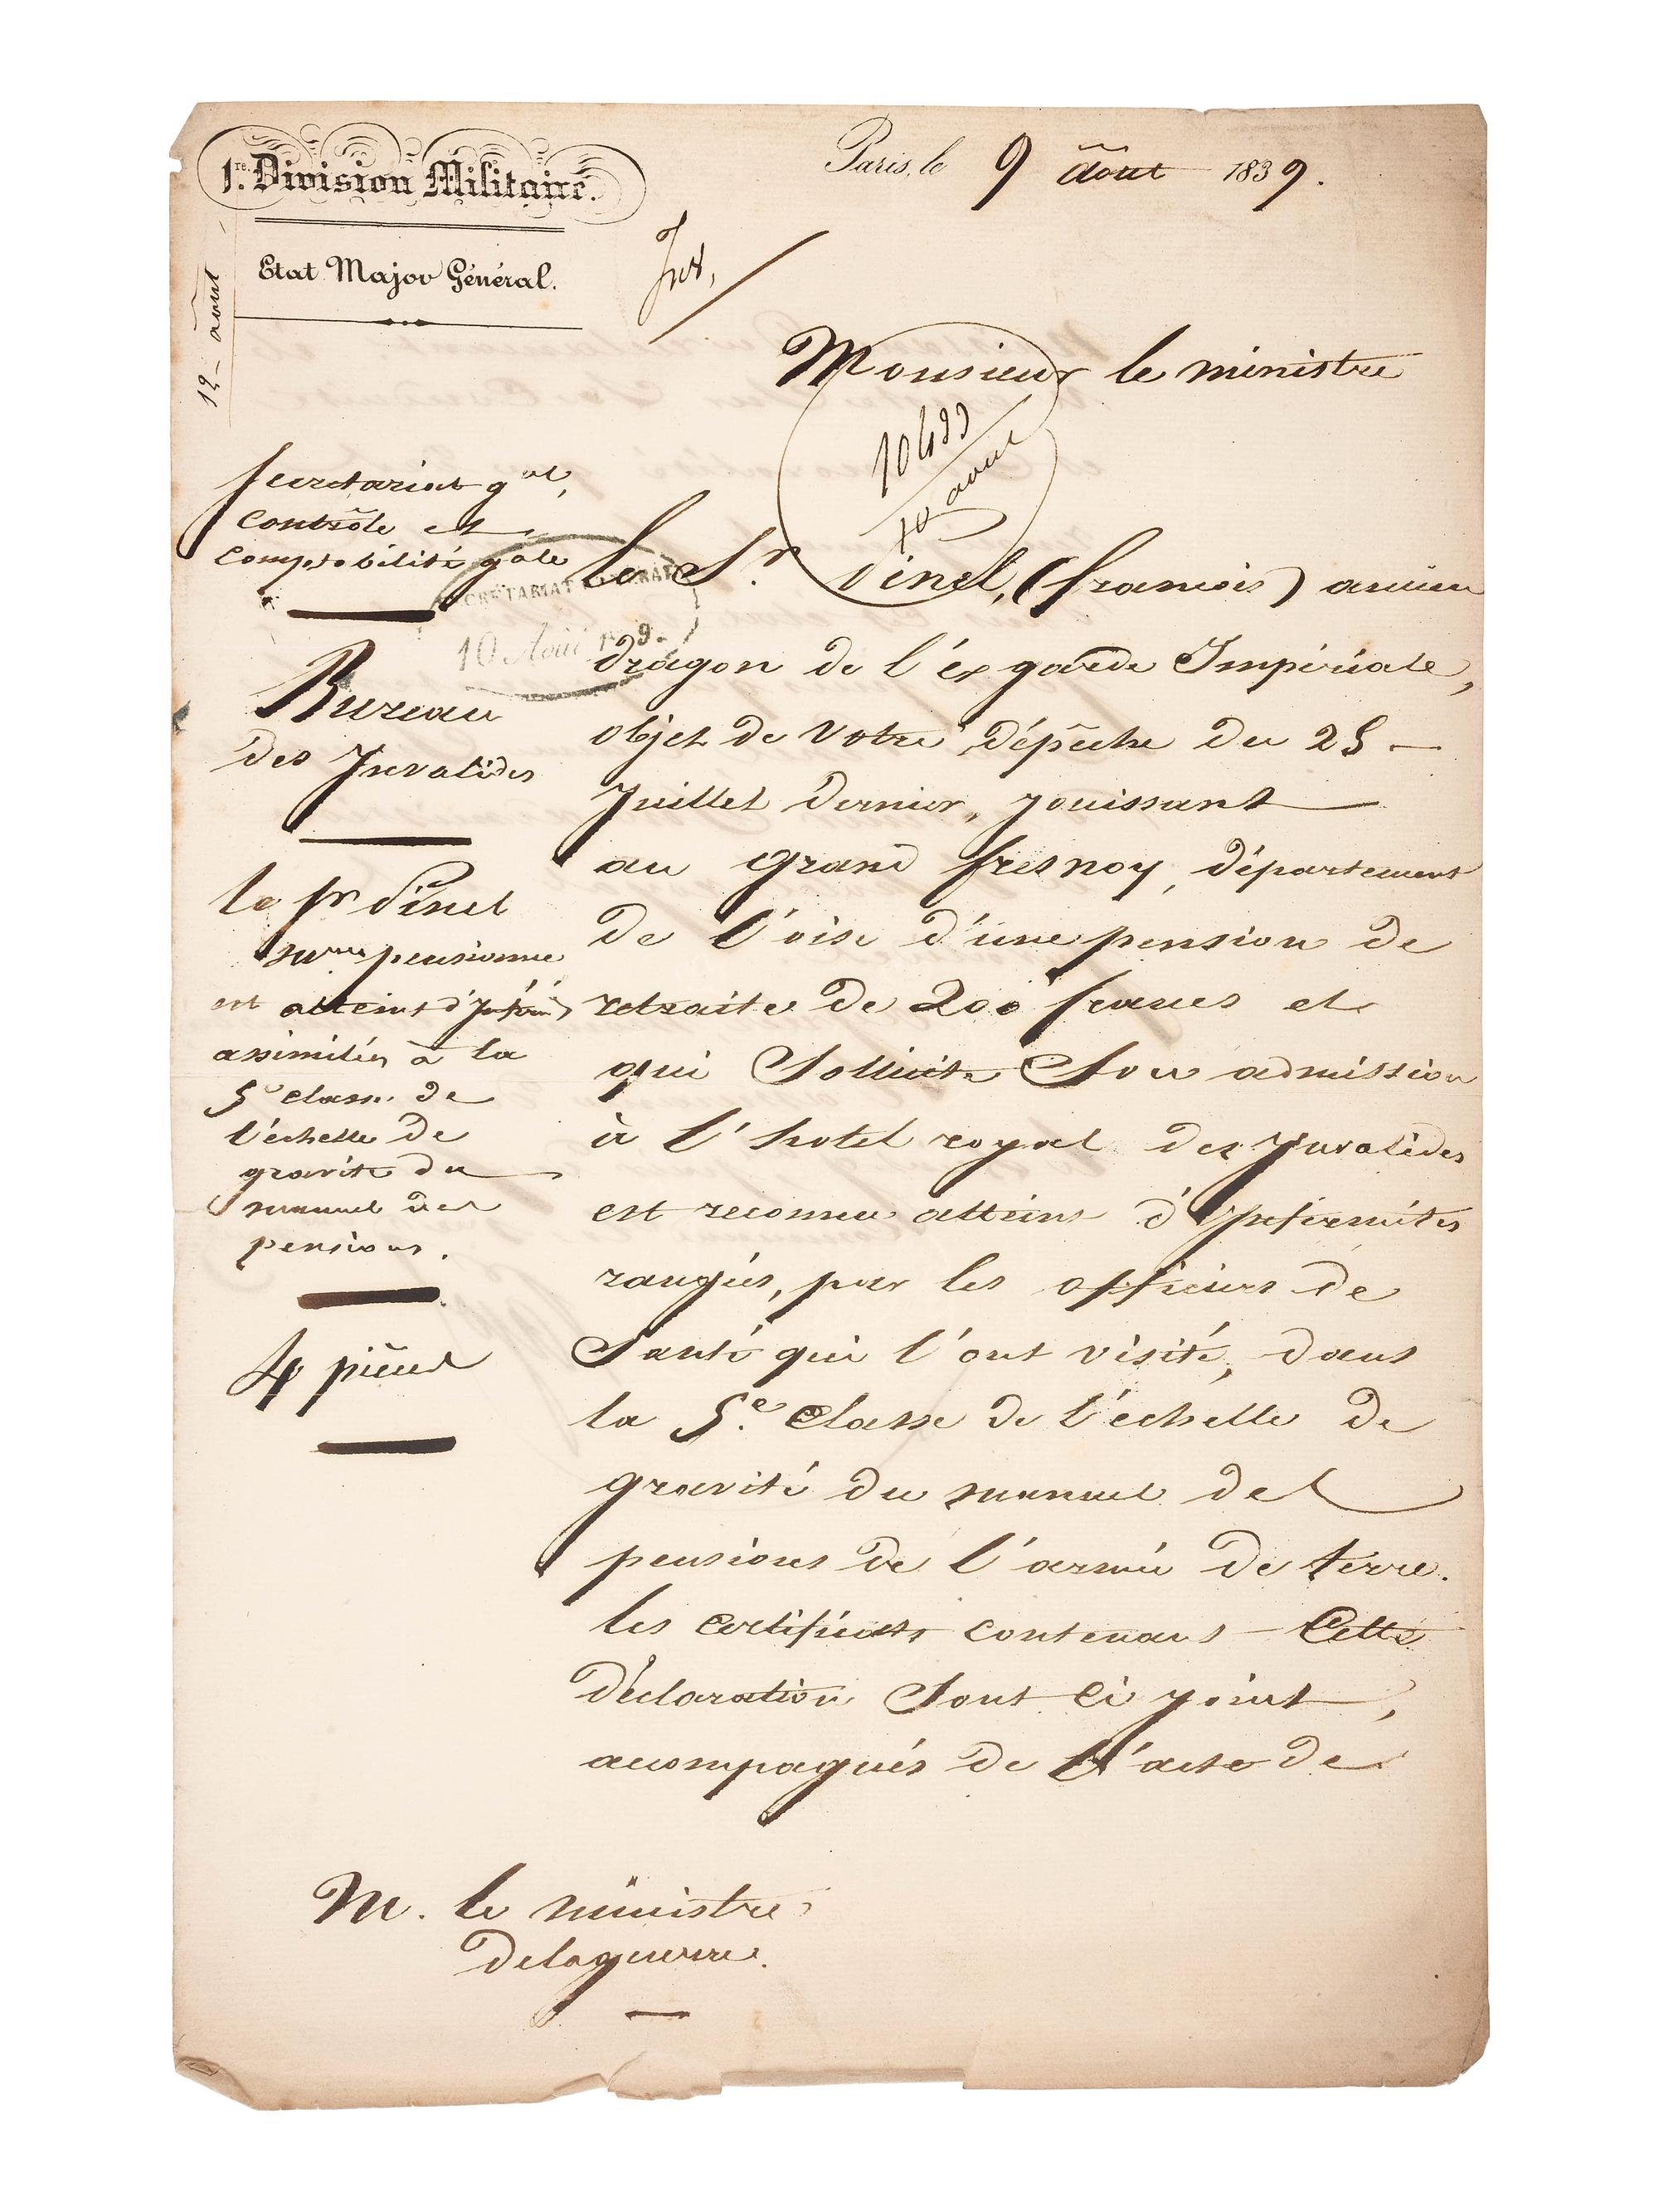 1re Division Militaire.
Etat Major Général.
Paris, le 9 août 1839.
12 août
Inv,
Monsieur le ministre
10 août
Secretariat gal,
Contrôle et
Comptabilité gale
SECRÉTARIAT GÉNÉRAL
10 Août 1839.
Bureau
des Invalides
le Sr Pinel
pensionné
est atteint d'Infirmités
assimilées à la
5e classe de
l'échelle de
gravité du
manuel des
pensions.
4 pièces
Le Sr. Pinel, (françois) ancien
dragon de l'ex garde Impériale,
objet de votre dépêche du 25
Juillet dernier, jouissant
au grand fresnoy, département
de l'oise d'une pension de
retraite de 200 francs et
qui Sollicite Son admission
à l'hotel royal des Invalides
est reconnu atteint d'Infirmités
rangées, par les officiers de
Santé qui l'ont visité, dans
la 5e. Classe de l'échelle de
gravité du manuel des
pensions de l'armée de terre.
les Certificats contenant Cette
déclaration Sont Ci joint,
accompagnés de l'acte de
M. le ministre
de la guerre.